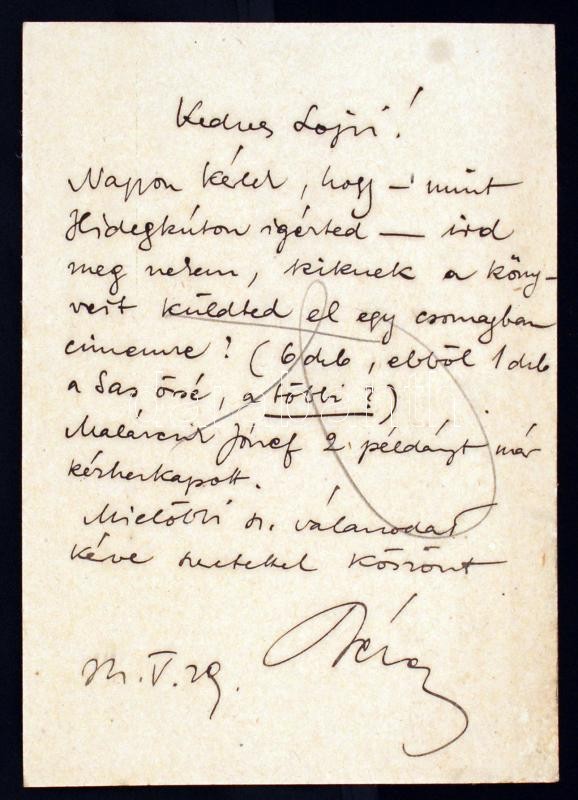 Kedves Lojzi!
Nagyon kérlek, hogy – mint
Hidegkúton igérted – ird
meg nekem, kiknek a köny-
veit küldted el egy csomagban
cimemre? (6 drb, ebből 1 drb
a Sas Össé, a többi?)
József 2 példányt már
kézhezkapott.
Mielőbbi sz. válaszodat
kérve szeretettel köszönt
V. 29.